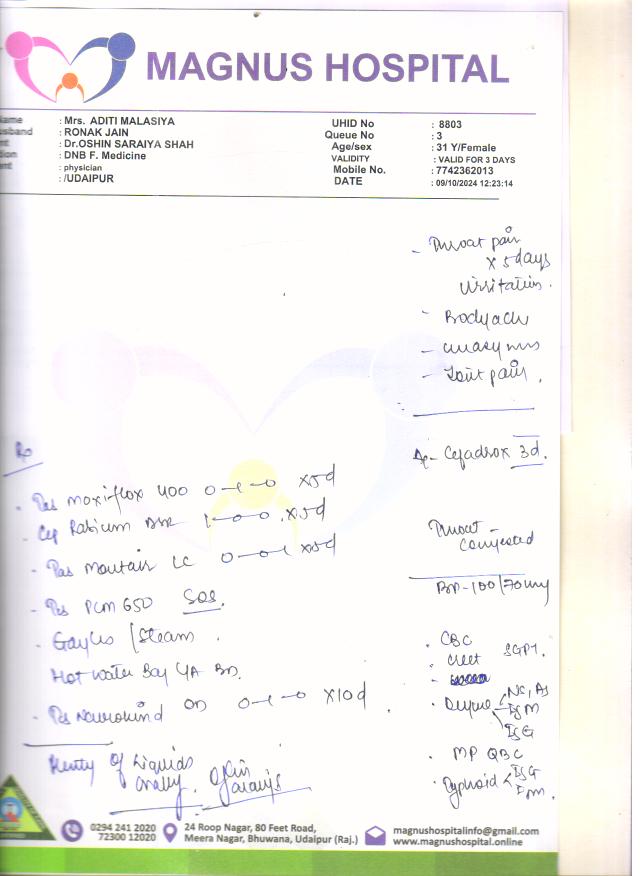 MAGNUS HOSPITAL
ame : Mrs. ADITI MALASIYA
usband : RONAK JAIN
nt : Dr.OSHIN SARAIYA SHAH
tion : DNB F. Medicine
ent : physician
: /UDAIPUR
UHID No : 8803
Queue No : 3
Age/sex : 31 Y/Female
VALIDITY : VALID FOR 3 DAYS
Mobile No. : 7742362013
DATE : 09/10/2024 12:23:14
- Throat pain
x 5 days
irritation.
- Bodyache
- uneasyness
- Joint pain.
- Cefadrox 3d.
Throat -
Congested
BP - 100/70
Rx
- Tab moxiflox 400 0-1-0 x5d
- Cap Rabium DSR 1-0-0 x5d
- Tab Montair LC 0-0-1 x5d
- Tab PCM 650 SOS.
- Gargles / Steam.
Hot water Bag
- Tab Neurokind OD 0-1-0 x10d
Plenty of Liquids
orally.
. CBC
. SGPT.
. Dengue NS, Ag
IgM
IgG
. MP QBC
. Typhoid IgG
IgM.
0294 241 2020
73001 12020
24 Roop Nagar, 80 Feet Road,
Meera Nagar, Bhuwana, Udaipur (Raj.)
magnushospitalinfo@gmail.com
www.magnushospital.online